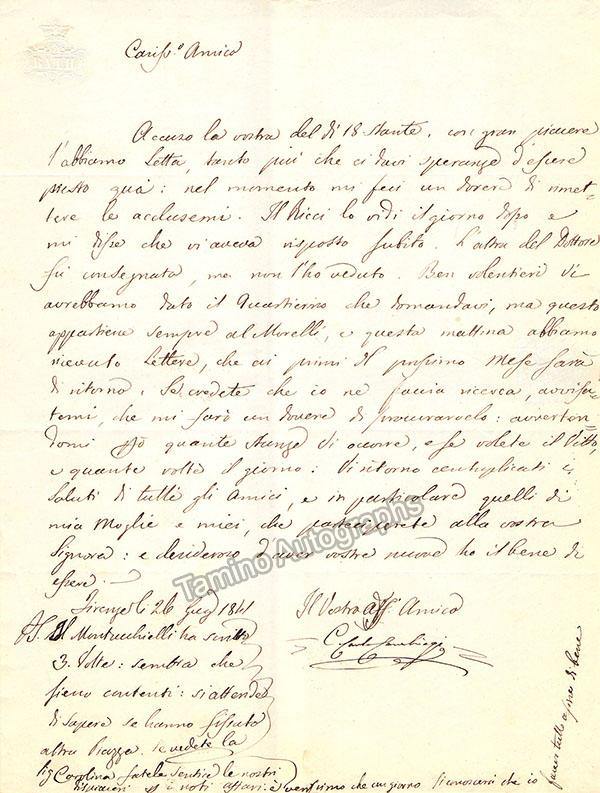 BATH
Cariss.o Amico
Accuso la vostra del dì 18 stante, con gran piacere
l'abbiamo Letta, tanto più che ci davi speranze d'essere
presto quà: nel momento mi feci un dovere di rimet=
tere le acclusemi. Il Ricci lo vidi il giorno dopo e
mi disse che vi aveva risposto subito. L'altra del Dottore
fù consegnata, ma non l'ho veduto. Ben volentieri Vi
avrebbamo dato il Quartierino che domandavi, ma questo
appartiene sempre al Morelli, e questa mattina abbiamo
ricevuto Lettere, che ai primi il prossimo Mese sarà
di ritorno. Se credete che io ne faccia ricerca, avvisa=
temi, che mi farò un dovere di procurarvelo: avverten=
domi quante stanze Vi occorre, e se volete il Vitto,
e quante volte il giorno: Vi ritorno centuplicati i
Saluti di tutti gli Amici, e in particolare quelli di
mia Moglie e miei, che parteciperete alla vostra
Signora: e desideroso d'aver vostre nuove ho il bene di
essere. —
Firenze li 26 Lug 1841
Il Vostro Aff. Amico
Carlo
PS. Il Montucchielli ha scritto
3. Volte: sembra che
sieno contenti: si attende
di sapere se hanno fissato
altra Piazza. Se vedete la
Sig Carolina fatele sentire le nostri
i noti affari: e che un giorno che io
bene
Tamino Autographs